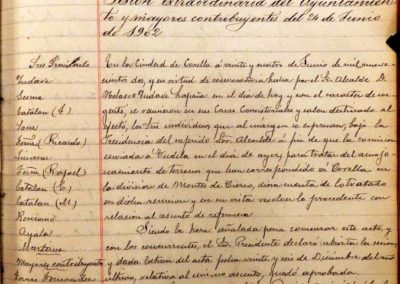 Sesión extraordinaria del Ayuntamien-
to y mayores contribuyentes del 24 de Junio
de 1902
Sres Presidente
Catalan (A)
Peña (Ricardo)
Peña (Rafael)
Catalan (E)
Catalan (M)
Romano
Ayala
Martinez
Mayores contribuyentes
En la Ciudad de Corella á veinte y cuatro de Junio de mil nove-
cientos dos, y en virtud de convocatoria hecha por el Sr. Alcalde D.
en el dia de hoy y con el caracter de ur-
gente, se reunieron en sus Casas Consistoriales y salon destinado al
efecto, los Sres individuos que al margen se expresan, bajo la
Presidencia del referido Sor Alcalde á fin de que la comision
enviada á Tudela en el dia de ayer para tratar del amojo-
namiento de terreno que han correspondido á Corella en
la division de Montes de Cierzo, diera cuenta de lo tratado
en dicha reunion y en su vista resolver lo procedente con
relacion al asunto de referencia.
Siendo la hora señalada para comenzar este acto, y
con los concurrentes, el Sr. Presidente declaró abierta la sesion,
y dada lectura del acta fecha veinte y seis de Diciembre del año
ultimo, relativa al mismo asunto, quedó aprobada.